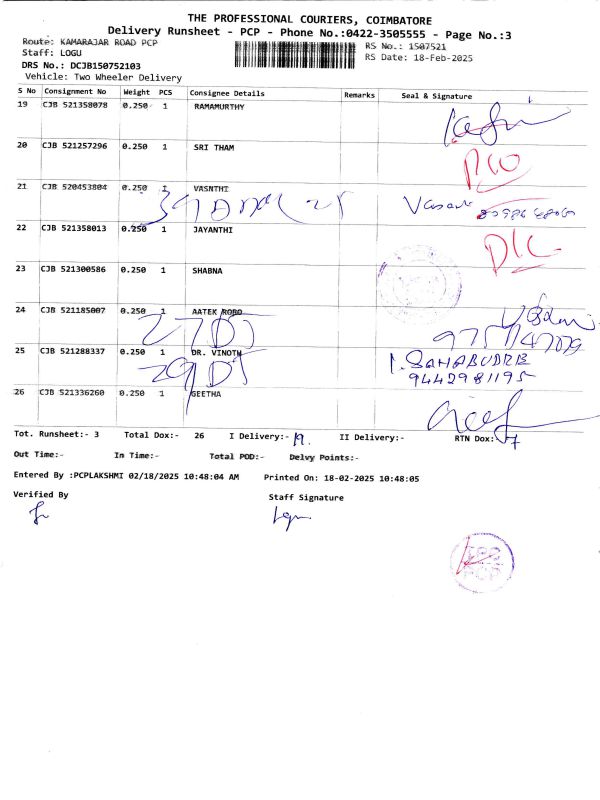 THE PROFESSIONAL COURIERS, COIMBATORE
Delivery Runsheet - PCP - Phone No.:0422-3505555 - Page No.:3
Route: KAMARAJAR ROAD PCP
RS No.: 1507521
Staff: LOGU
RS Date: 18-Feb-2025
DRS No.: DCJB150752103
Vehicle: Two Wheeler Delivery
S No Consignment No Weight PCS Consignee Details Remarks Seal & Signature
19 CJB 521358078 0.250 1 RAMAMURTHY
20 CJB 521257296 0.250 1 SRI THAM
21 CJB 520453804 0.250 1 VASNTHI
22 CJB 521358013 0.250 1 JAYANTHI
D/C
23 CJB 521300586 0.250 1 SHABNA
24 CJB 521185007 0.250 1 AATEK ROBO
25 CJB 521288337 0.250 1 DR. VINOTH
9442981195
26 CJB 521336260 0.250 1 GEETHA
Tot. Runsheet:- 3 Total Dox:- 26 I Delivery:- 19 II Delivery:- RTN Dox:- 7
Out Time:- In Time:- Total POD:- Delvy Points:-
Entered By :PCPLAKSHMI 02/18/2025 10:48:04 AM Printed On: 18-02-2025 10:48:05
Verified By Staff Signature
PCP